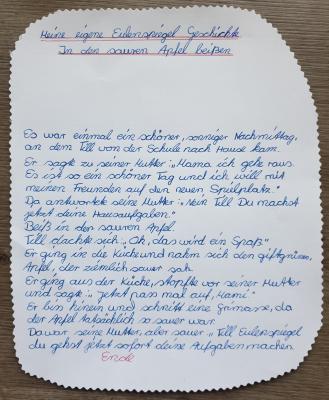 Meine eigene Eulenspiegel Geschichte
In den sauren Apfel beißen
Es war einmal ein schöner, sonniger Nachmittag,
an dem Till von der Schule nach Hause kam.
Er sagte zu seiner Mutter: „Mama ich gehe raus.
Es ist so ein schöner Tag und ich will mit
meinen Freunden auf den neuen Spielplatz."
Da antwortete seine Mutter: „Nein Till Du machst
jetzt deine Hausaufgaben."
Beiß in den sauren Apfel.
Till dachte sich: „Oh, das wird ein Spaß."
Er ging in die Küche und nahm sich den giftgrünen,
Apfel, der ziemlich sauer sah.
Er ging aus der Küche, stopfte vor seiner Mutter
und sagte: „jetzt pass mal auf, Mami"
Er bis hinein und schnitt eine Grimasse, da
der Apfel tatsächlich so sauer war.
Da war seine Mutter, aber sauer „Till Eulenspiegel
du gehst jetzt sofort deine Aufgaben machen.
Ende